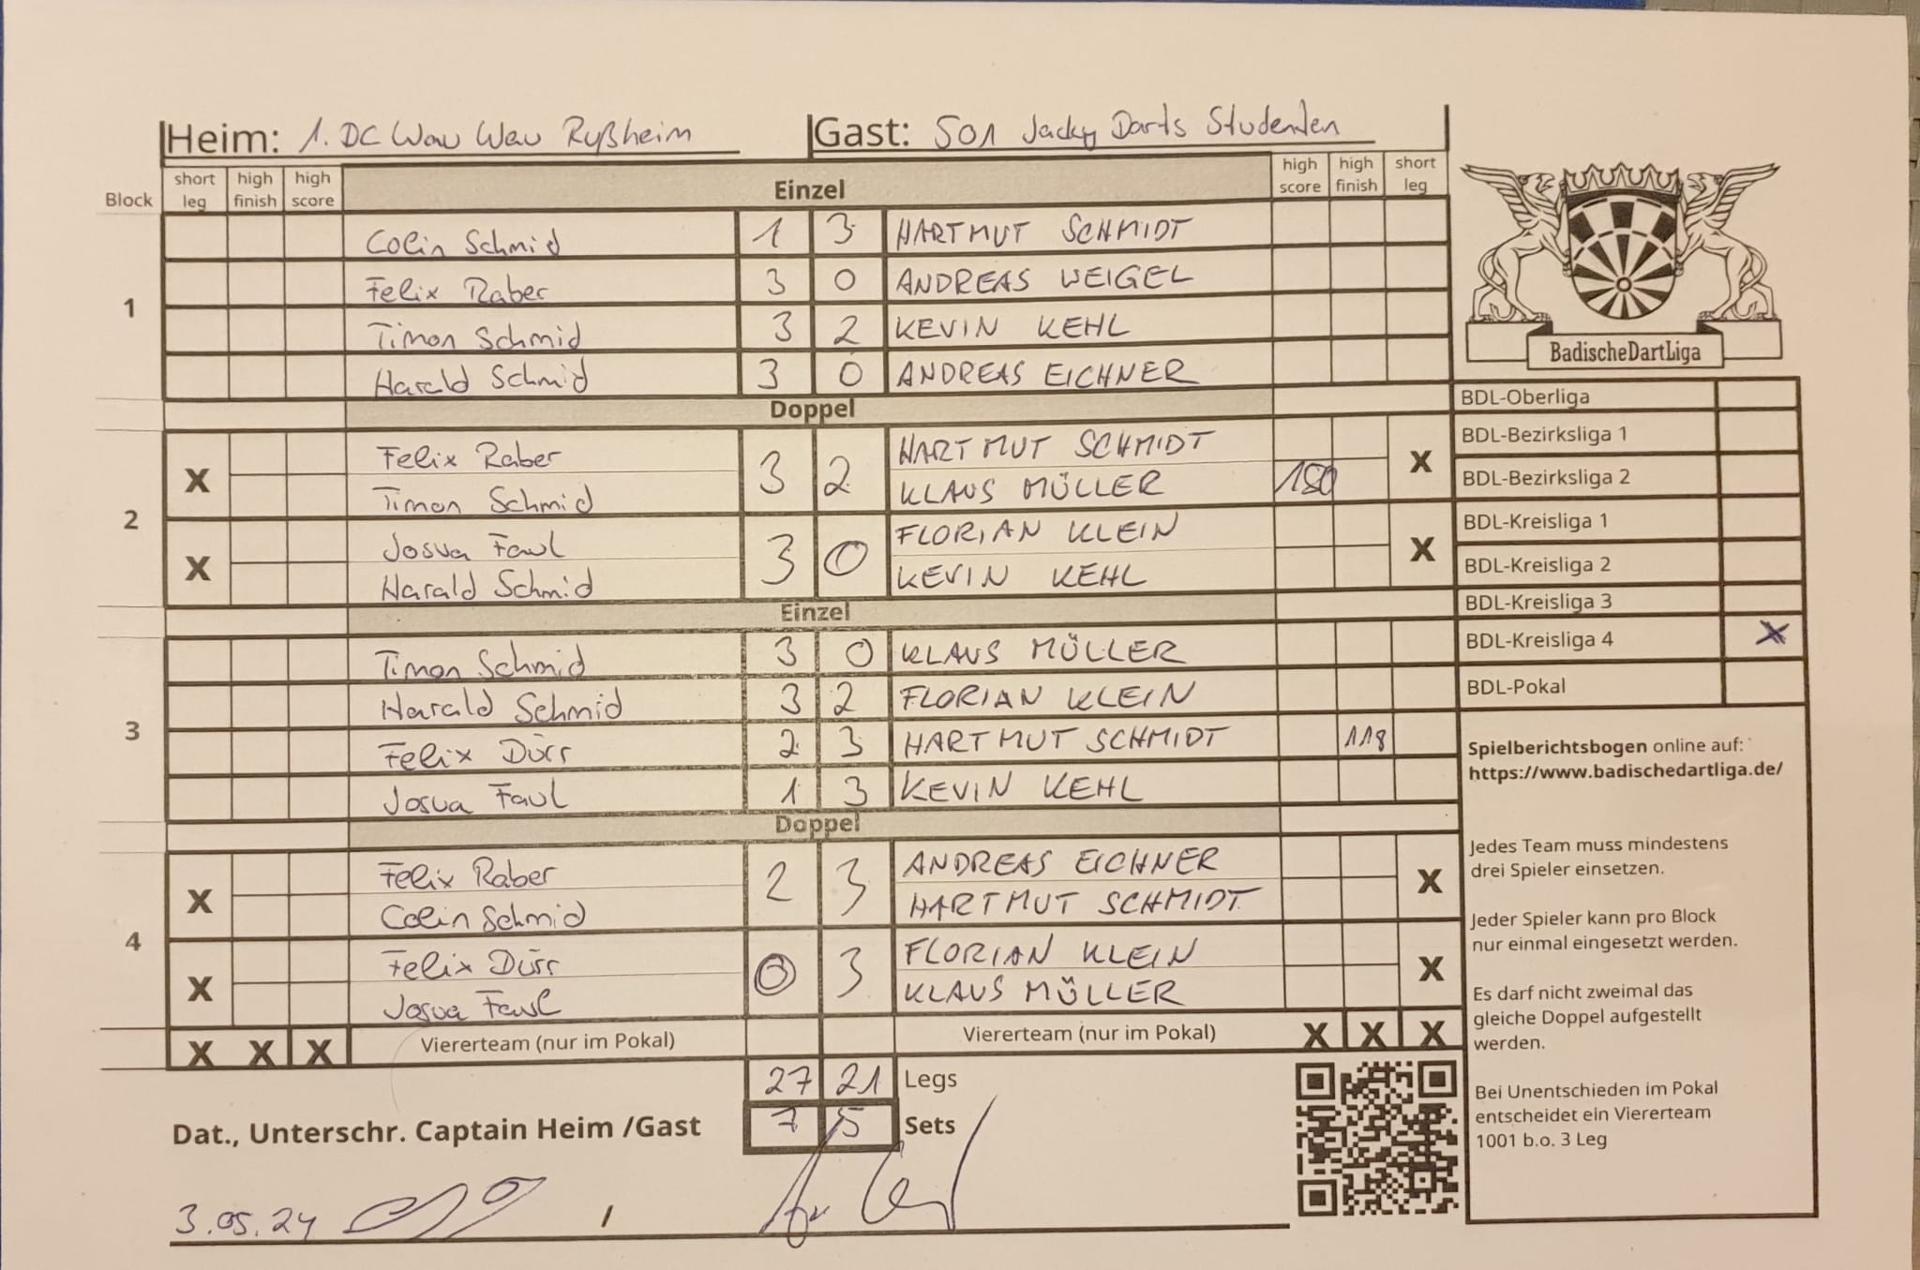 Heim: 1. DC Wau Wau Rußheim Gast: 501 Jacky Darts Studenten
Block short leg high finish high score Einzel high score high finish short leg
1
Colin Schmid 1 3 HARTMUT SCHMIDT
Felix Raber 3 0 ANDREAS WEIGEL
Timon Schmid 3 2 KEVIN KEHL
Harald Schmid 3 0 ANDREAS EICHNER
Doppel
2
X Felix Raber 3 2 HARTMUT SCHMIDT X
Timon Schmid KLAUS MÜLLER 180
X Josua Faul 3 0 FLORIAN KLEIN X
Harald Schmid KEVIN KEHL
Einzel
3
Timon Schmid 3 0 KLAUS MÜLLER
Harald Schmid 3 2 FLORIAN KLEIN
Felix Dürr 2 3 HARTMUT SCHMIDT 118
Josua Faul 1 3 KEVIN KEHL
Doppel
4
X Felix Raber 2 3 ANDREAS EICHNER X
Colin Schmid HARTMUT SCHMIDT
X Felix Dürr 0 3 FLORIAN KLEIN X
Josua Faul KLAUS MÜLLER
X X X Viererteam (nur im Pokal) Viererteam (nur im Pokal) X X X
27 21 Legs
7 5 Sets
Dat., Unterschr. Captain Heim /Gast
3.05.24 /
BadischeDartLiga
BDL-Oberliga
BDL-Bezirksliga 1
BDL-Bezirksliga 2
BDL-Kreisliga 1
BDL-Kreisliga 2
BDL-Kreisliga 3
BDL-Kreisliga 4 X
BDL-Pokal
Spielberichtsbogen online auf:
https://www.badischedartliga.de/
Jedes Team muss mindestens
drei Spieler einsetzen.
Jeder Spieler kann pro Block
nur einmal eingesetzt werden.
Es darf nicht zweimal das
gleiche Doppel aufgestellt
werden.
Bei Unentschieden im Pokal
entscheidet ein Viererteam
1001 b.o. 3 Leg